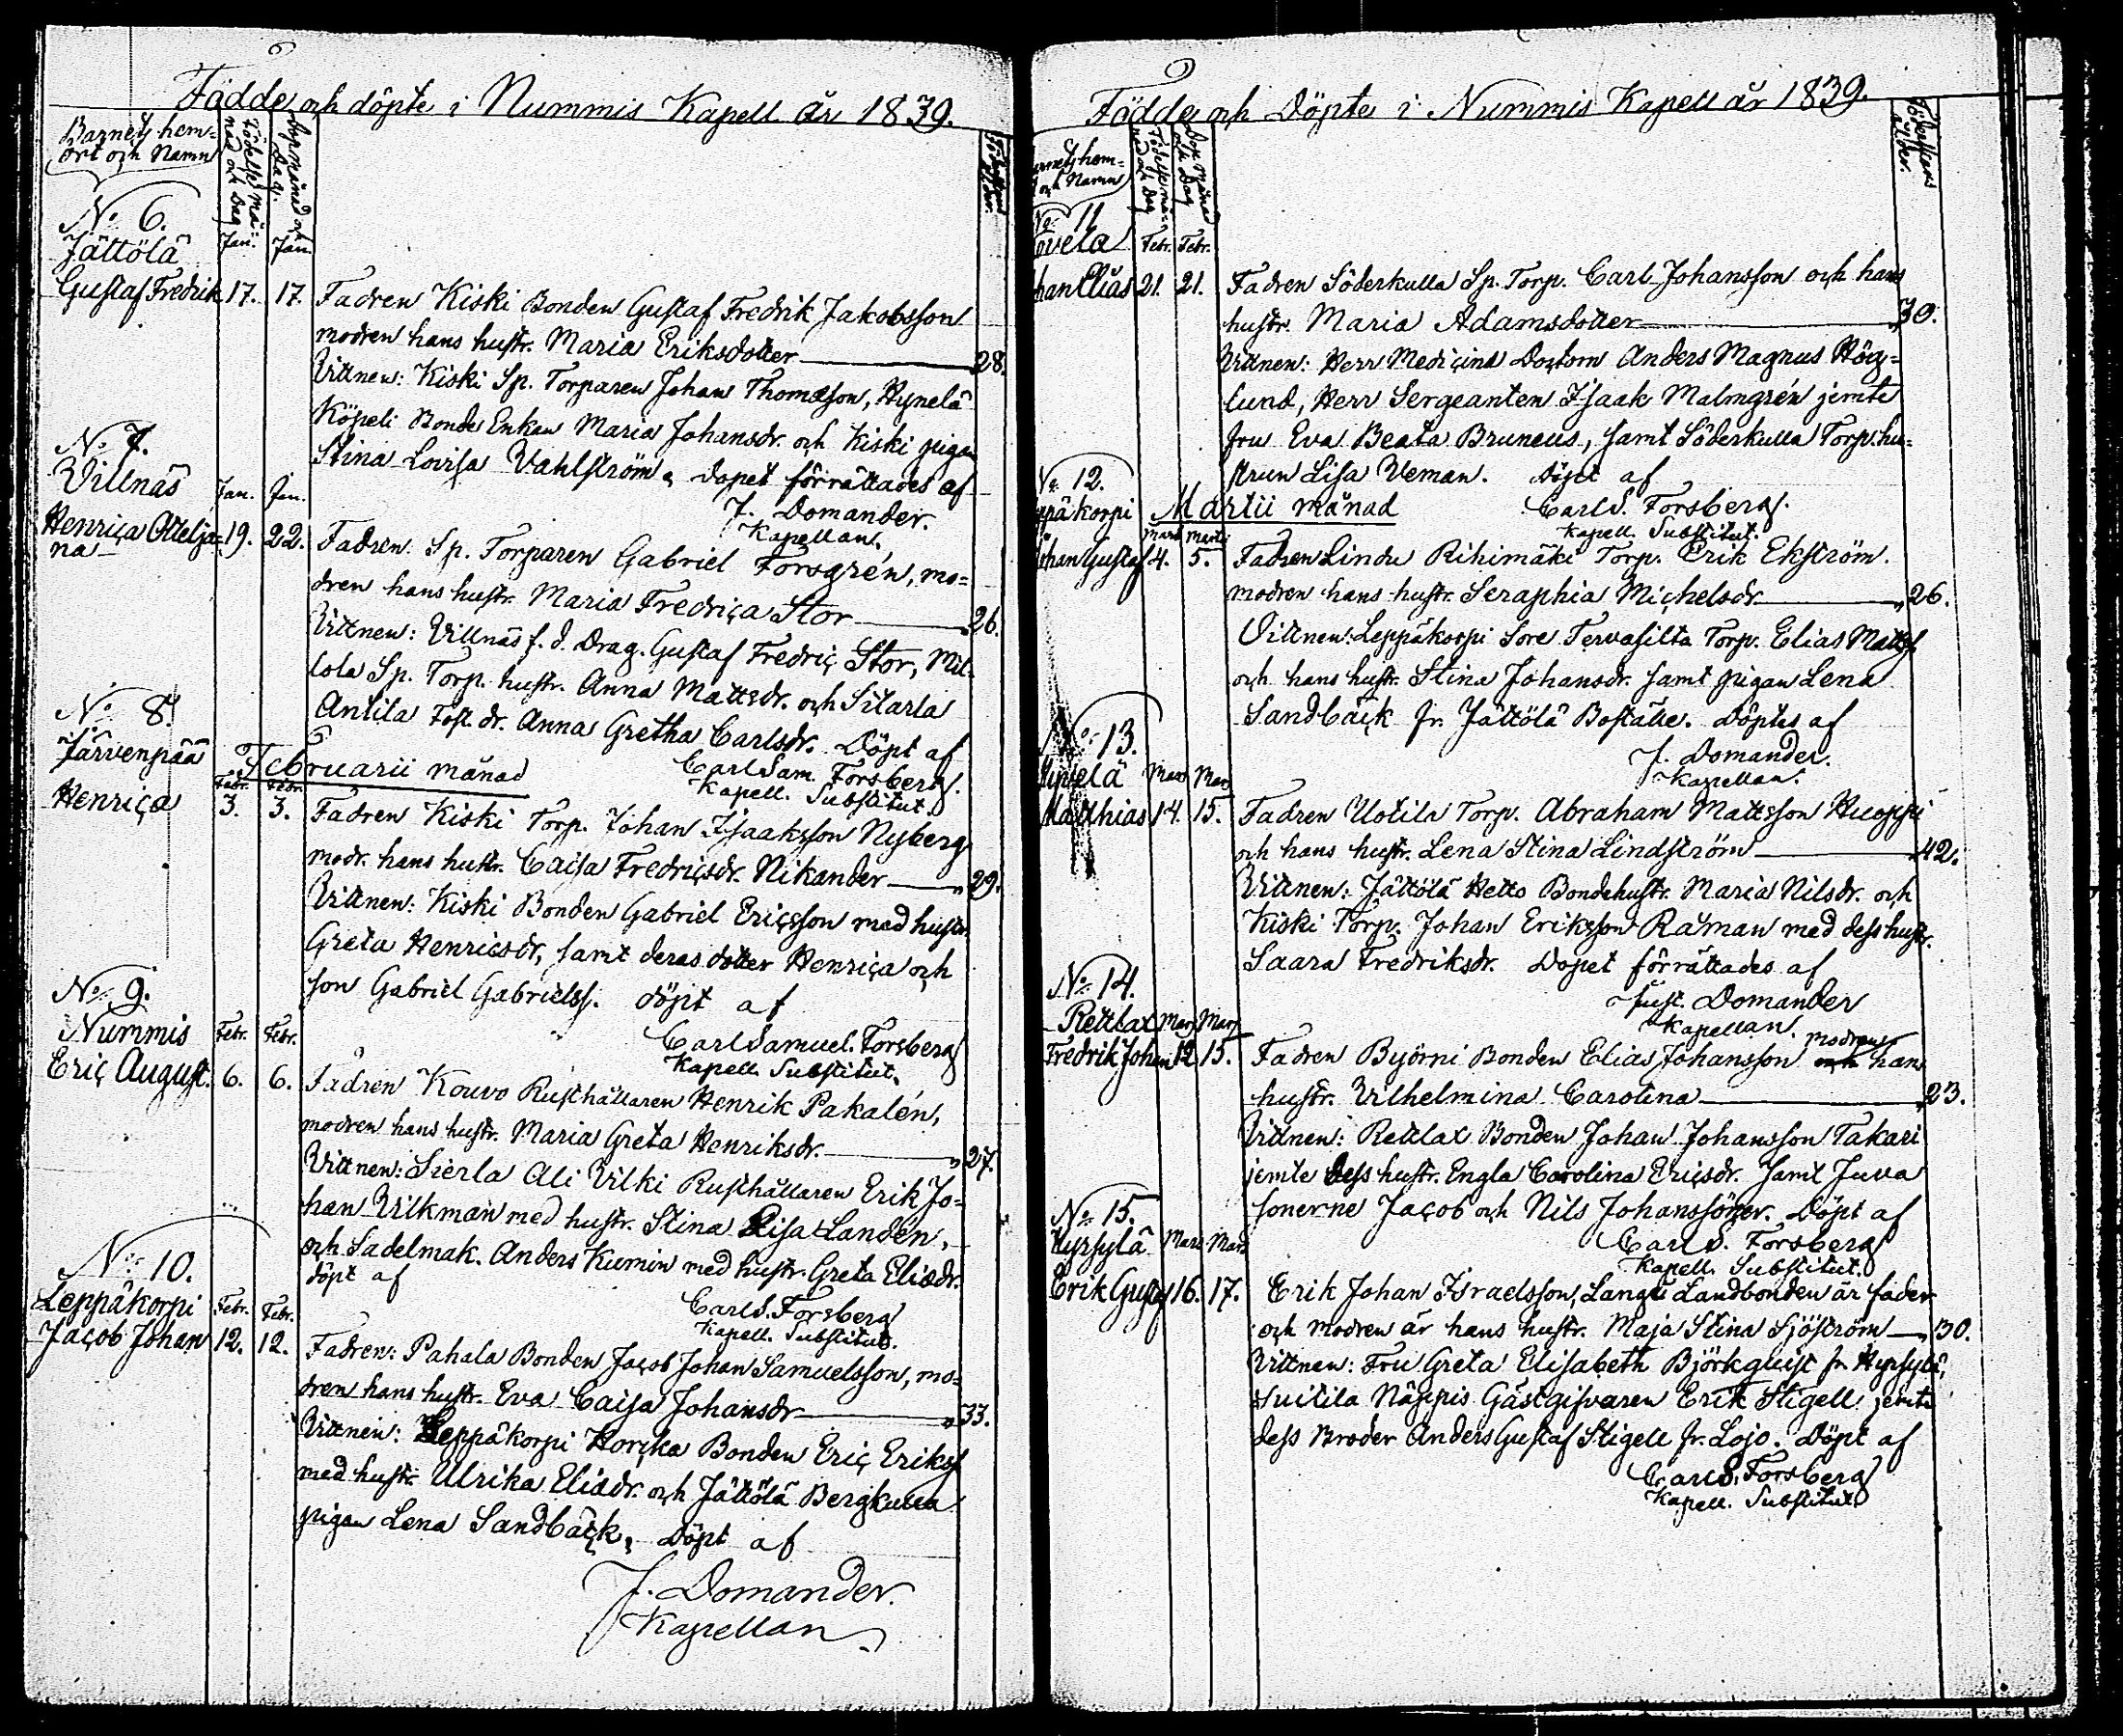 Födde och döpte i Nummis Kapell år 1839.
Barnets hem=
ort och Namn
Födelse må=
nad och Dag
Dop månad och
Dag.
Föderskans
ålder.
No 6.
Jättölä
Jan. Jan.
Gustaf Fredrik 17. 17. Fadren Kiski Bonden Gustaf Fredrik Jakobsson
modren hans hustr. Maria Eriksdotter 28.
Vittnen: Kiski Sp. Torparen Johan Thomasson, Hynelä
Köpeli Bonde Enkan Maria Johansdr. och Kiski pigan
Stina Lovisa Vahlström, dopet förrättades af
J. Domander.
Kapellan.
No 7.
Villnäs Jan. Jan.
Henrica Ottelja= 19. 22. Fadren Sp. Torparen Gabriel Forsgrén, mo=
na
dren hans hustr. Maria Fredrica Stor 26.
Vittnen: Villnäs f. d. Drag. Gustaf Fredric Stor, Mil=
lola Sp. Torp. hustr. Anna Mattsdr. och Sitarla
Antila Fost. dr. Anna Gretha Carlsdr. Döpt af
Carl Sam. Forsberg.
Kapell. Substitut.
No 8.
Järvenpää
Februarii månad
Febr. Febr.
Henrica 3. 3. Fadren Kiski Torp. Johan Isaaksson Nyberg
modr. hans hustr. Caisa Fredricsdr. Nikander 29.
Vittnen: Kiski Bonden Gabriel Ericsson med hustr.
Greta Henricsdr, samt deras dotter Henrica och
son Gabriel Gabrielss. döpt af
Carl Samuel Forsberg
Kapell. Substitut.
No 9.
Nummis Febr. Febr.
Eric August. 6. 6. Fadren Kouvo Rusthållaren Henrik Pakalén,
modren hans hustr. Maria Greta Henriksdr. 27.
Vittnen: Sierla Ali Vilki Rusthållaren Erik Jo=
han Vilkman med hustr. Stina Lisa Landén,
och Sadelmak. Anders Kumin med hustr. Greta Eliædr.
döpt af
Carl S. Forsberg
Kapell. Substitut.
No 10.
Leppäkorpi Febr. Febr.
Jacob Johan 12. 12. Fadren: Pahala Bonden Jacob Johan Samuelsson, mo=
dren hans hustr. Eva Caisa Johansdr 33.
Vittnen: Leppäkorpi Horcka Bonden Eric Eriks.
med hustr. Ulrika Eliædr. och Jättölä Bergkulla
pigan Lena Sandbäck, Döpt af
J. Domander.
Kapellan
Födde och Döpte i Nummis Kapell år 1839.
hem=
och Namn
Födelse må=
nad och Dag
Dop månad
och Dag
Föderskans
ålder.
No 11
Febr. Febr.
Elias 21. 21. Fadren Söderkulla Sp. Torp. Carl Johansson och hans
hustr. Maria Adamsdotter 30.
Vittnen: Herr Medicina Doctorn Anders Magnus Hög=
lund, Herr Sergeanten Isaak Malmgrén jemte
fru Eva Beata Bruneus, samt Söderkulla Torp. hu=
strun Lisa Veman. Döpt af
Carl S. Forsberg.
Kapell. Substitut.
No 12.
päkorpi Martii månad
Marti Marti
han Gustaf 4. 5. Fadren Lindu Rihimäki Torp. Erik Ekström.
modren hans hustr. Seraphia Michelsdr. 26.
Vittnen: Leppäkorpi Sore Tervasilta Torp. Elias Mattss.
och hans hustr. Stina Johansdr. samt pigan Lena
Sandbäck fr. Jättölä Boställe. Döptes af
J. Domander.
Kapellan.
No 13.
Mars Mars
Matthias 14. 15. Fadren Uotila Torp. Abraham Mattsson Huoppi
och hans hustr. Lena Stina Lindström 42.
Vittnen: Jättölä Hetto Bondehustr. Maria Nilsdr. och
Kiski Torp. Johan Eriksson Råman med dess hustr.
Saara Fredriksdr. Dopet förrättades af
Just. Domander
Kapellan.
No 14.
Rettlax Mars Mars
Fredrik Johan 12. 15. Fadren Byörni Bonden Elias Johansson modren hans
hustr. Vilhelmina Carolina 23.
Vittnen: Rettlax Bonden Johan Johansson Takari
jemte dess hustr. Engla Carolina Ericsdr. samt Juva
sonerne Jacob och Nils Johanssöner. Döpt af
Carl S. Forsberg
Kapell. Substitut.
No 15.
Hyrsylä Mars Mars
Erik Gustaf 16. 17. Erik Johan Israelsson, Langi Landbonden är fader
och modren är hans hustr. Maja Stina Sjöström 30.
Vittnen: Fru Greta Elisabeth Björkquist fr. Hyrsylä,
Suitila Näppis Gästgifvaren Erik Stigell jemte
dess Broder Anders Gustaf Stigell fr. Lojo. Döpt af
Carl S. Forsberg
Kapell. Substitut.